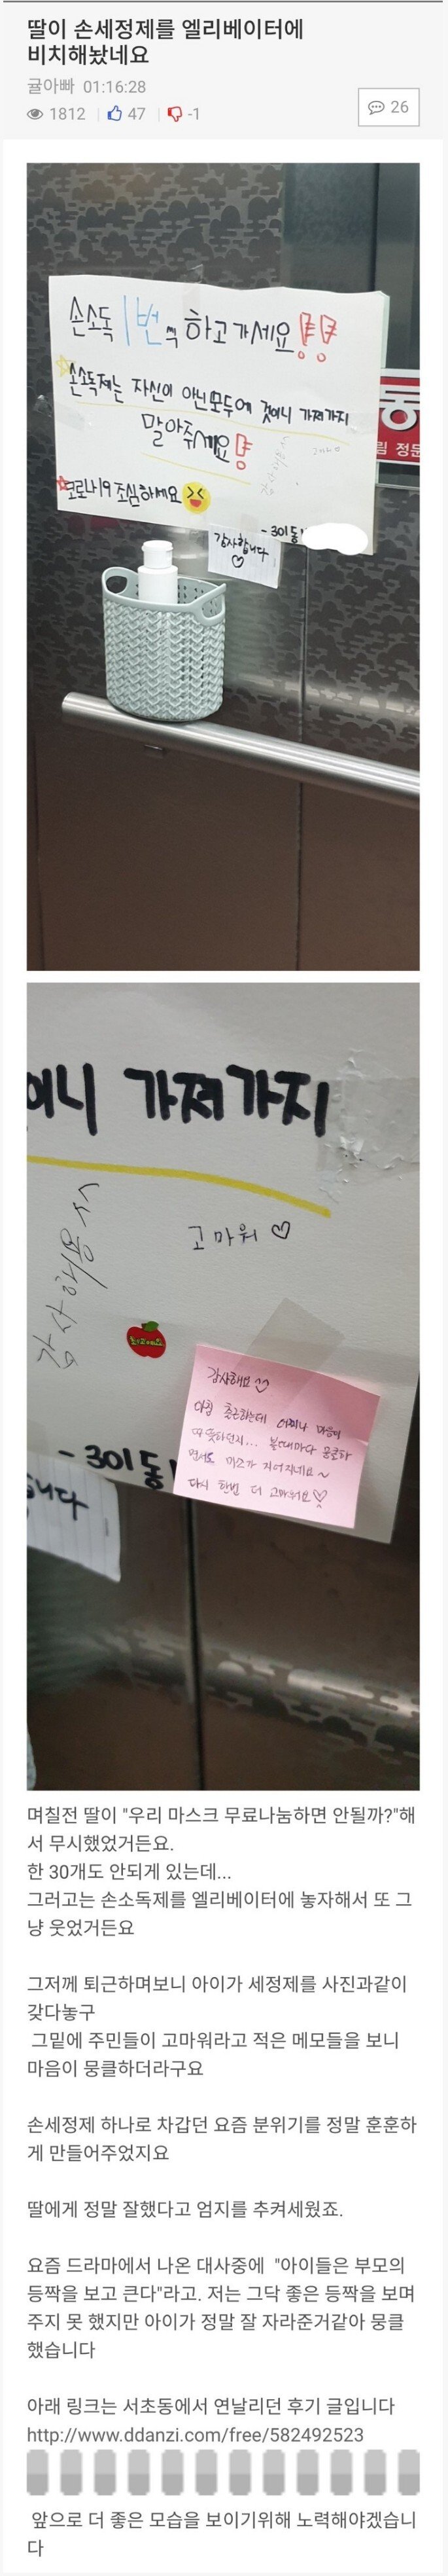 딸이 손세정제를 엘리베이터에
비치해놨네요
귤아빠 01:16:28
1812 47 -1
26
손소독 1번씩 하고가세요!!
손소독제는 자신이 아닌 모두에 것이니 가져가지
말아주세요!
감사해용^^
고마워♡
코로나19 조심하세요
-301동
감사합니다
♡
동
림 정문
이니 가져가지
감사해용^^
고마워 ♡
감사해요
아침 출근하는데 어찌나 마음이
따뜻하던지... 볼때마다 뭉클하
면서도 미소가 지어지네요~
다시 한번 더 고마워요♡
-301동
니다
며칠전 딸이 "우리 마스크 무료나눔하면 안될까?"해
서 무시했었거든요.
한 30개도 안되게 있는데...
그러고는 손소독제를 엘리베이터에 놓자해서 또 그
냥 웃었거든요
그저께 퇴근하며보니 아이가 세정제를 사진과같이
갖다놓구
그밑에 주민들이 고마워라고 적은 메모들을 보니
마음이 뭉클하더라구요
손세정제 하나로 차갑던 요즘 분위기를 정말 훈훈하
게 만들어주었지요
딸에게 정말 잘했다고 엄지를 추켜세웠죠.
요즘 드라마에서 나온 대사중에 "아이들은 부모의
등짝을 보고 큰다"라고. 저는 그닥 좋은 등짝을 보며
주지 못 했지만 아이가 정말 잘 자라준거같아 뭉클
했습니다
아래 링크는 서초동에서 연날리던 후기 글입니다
http://www.ddanzi.com/free/582492523
앞으로 더 좋은 모습을 보이기위해 노력해야겠습니
다